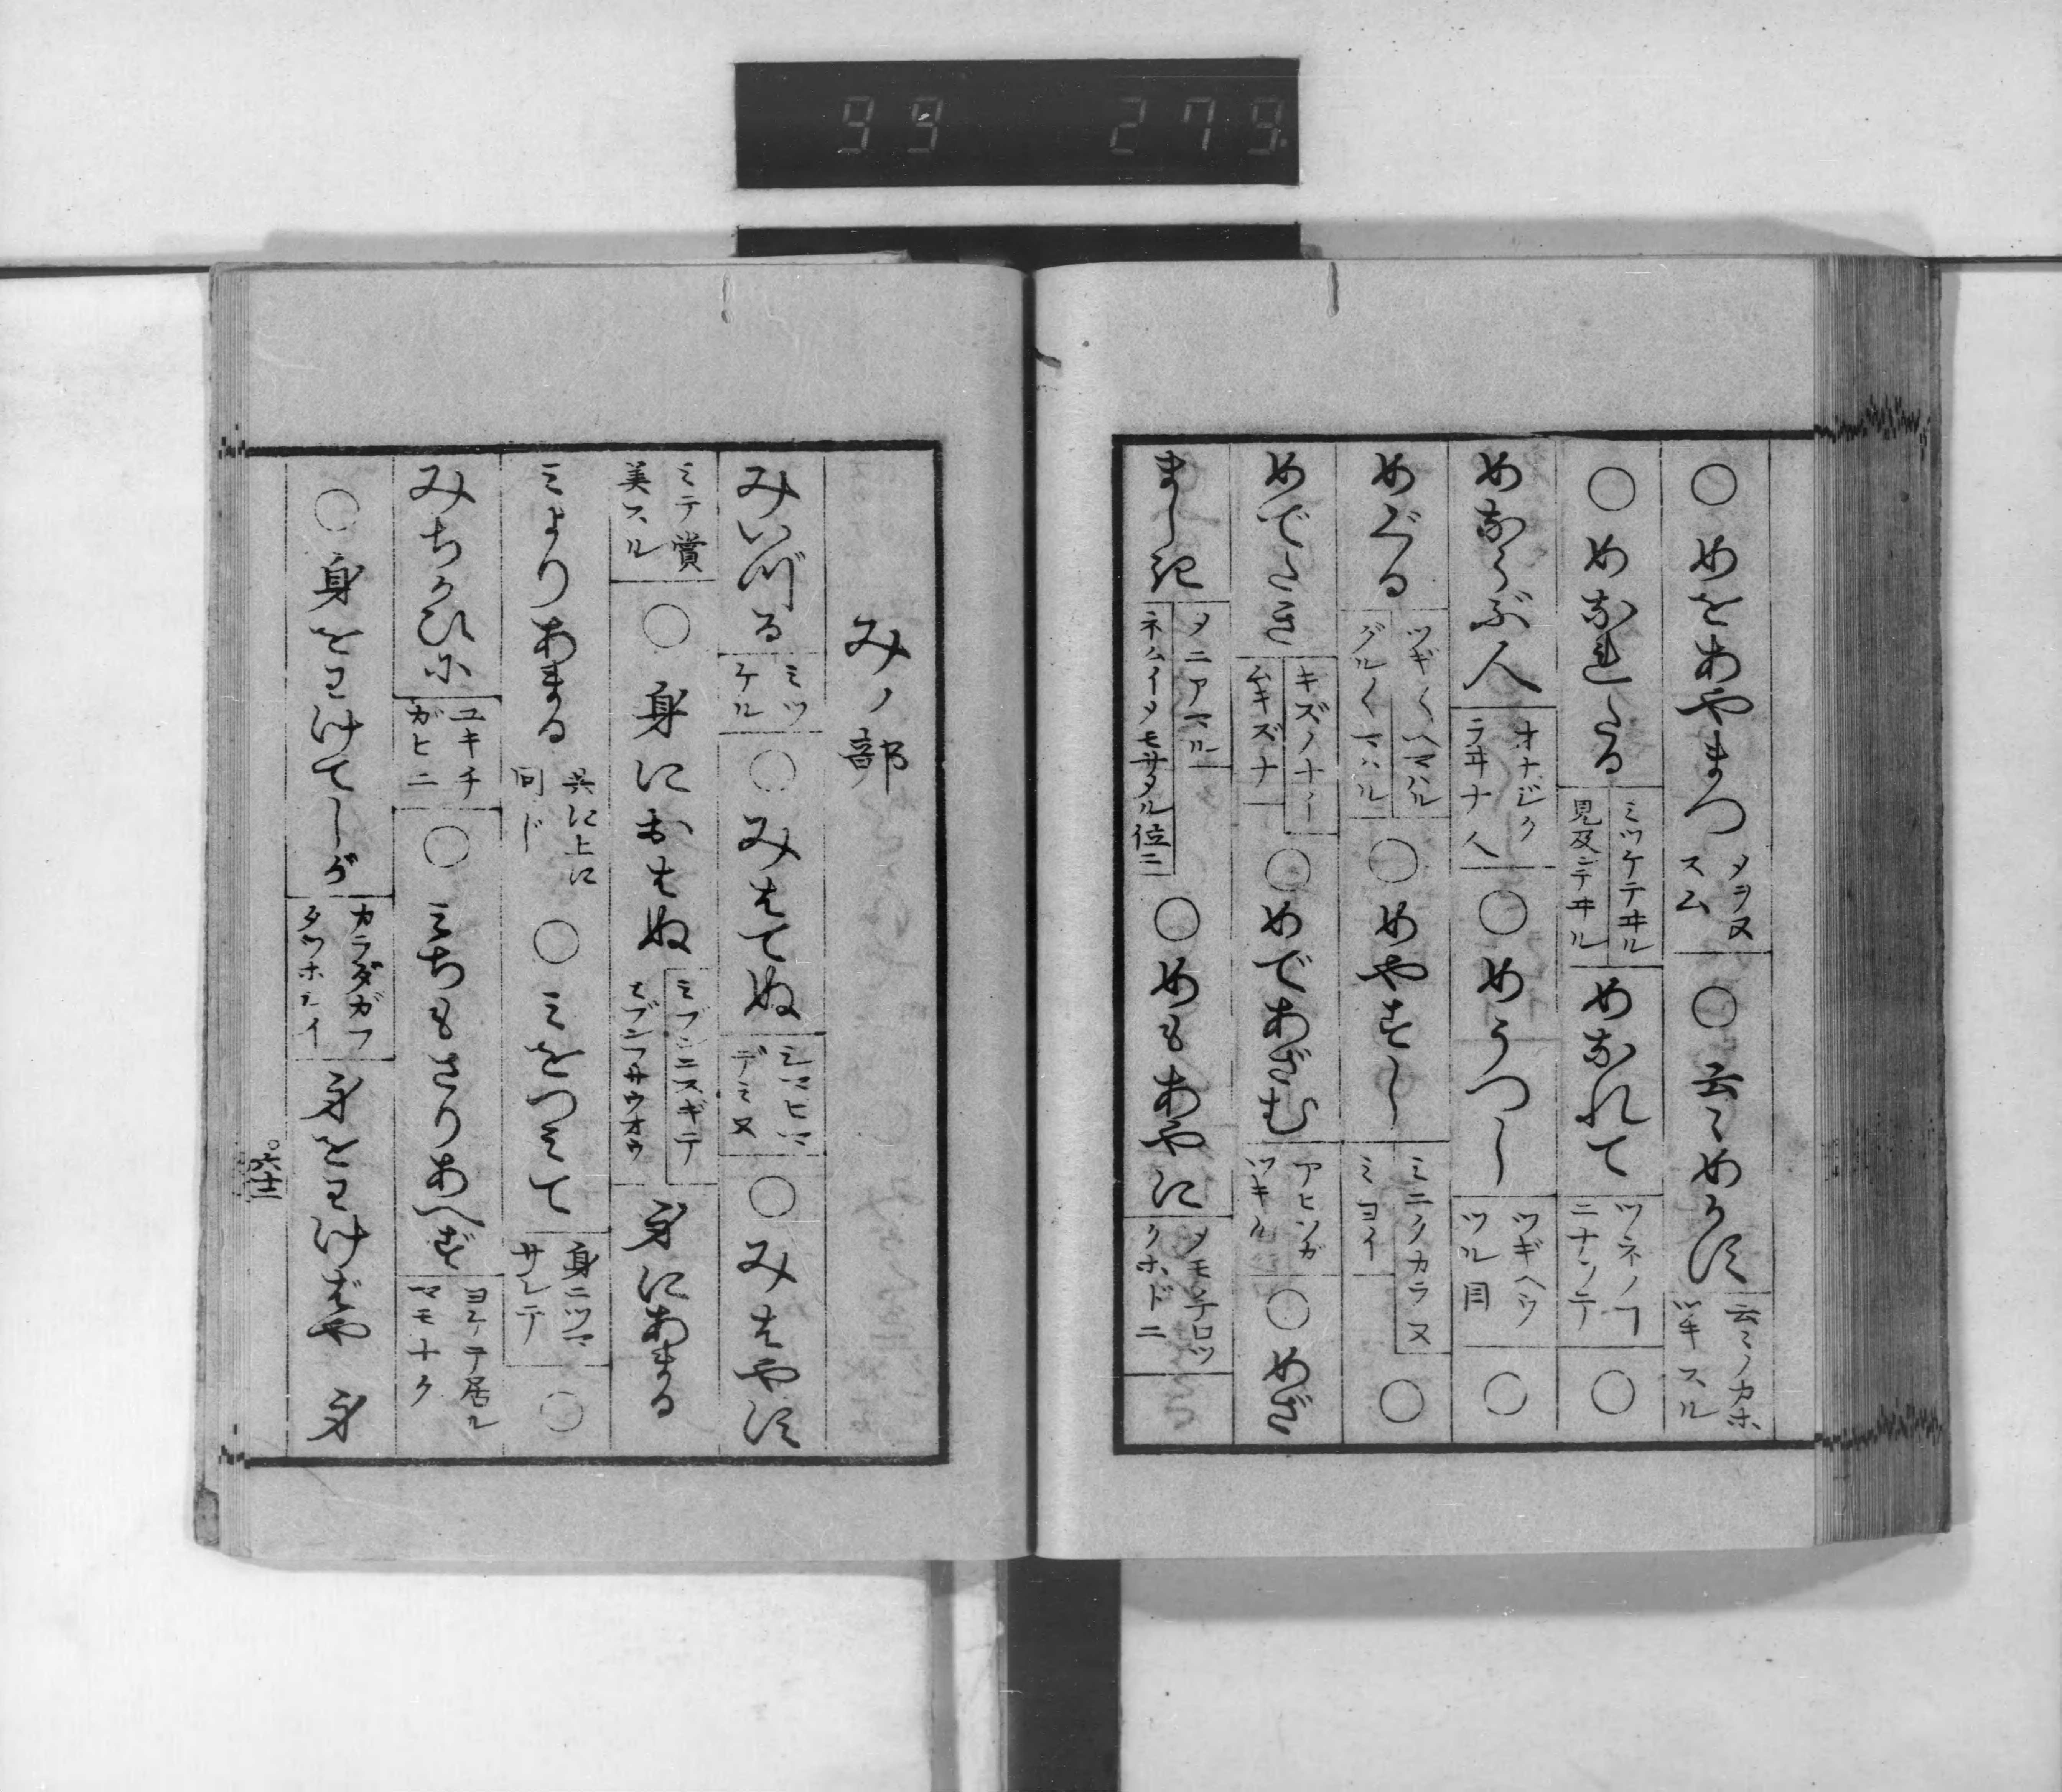 99 279
○めをあやまつ タヲヌスム ○云々めかす 云々ノカホツキスル
○めなれたる ミツケテヰル 見及デヰル めなれて ツネノヿニナツテ ○
めならぶ人 オナジクラヰナ人 ○めうつし ツギヘウツル目 ○
めぐる ツギ〱ヘマハル グル〱マハル ○めやすし ミニクカラヌ ミヨイ ○
めでたき キズノナイ ムキズナ ○めであざむ アヒソガツキル ○めざ
まし記 メニアマル ネムイメモサメル位ニ ○めもあやに
みノ部
みいづる ミツケル ○みはてぬ シマヒマデミヌ ○みはやす
ミテ賞美スル ○身におはぬ ミブンニスギテ ミブンフサウオウ 身にあまる
ミよりあまる 共に上に同じ ○ミをつみて 身ニツマサレテ ○
みちかひに ユキチガヒニ ○ミちもさりあへず ヨケテ居ルマモナク
○身をわけてしが カラダガフタツホシイ 身をわけばや 身
六十二